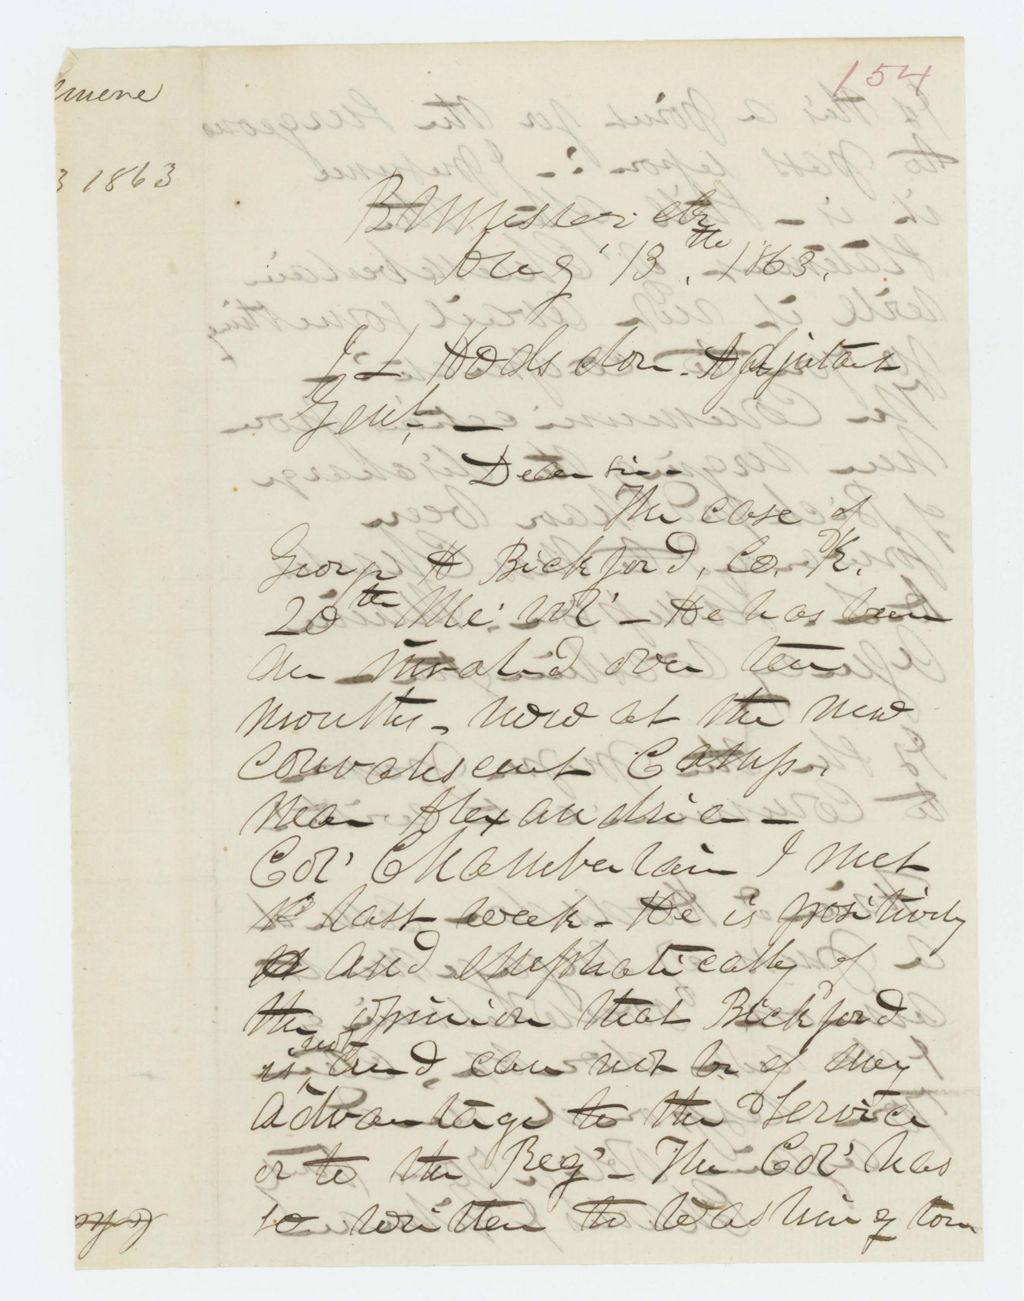 154
3 1863
Augt 13th, 1863.
J L Hodsdon Adjutant
Genl. —
Dear sir —
The case of
George H Bickford, Co. "K".
20th Me. Vol' — He has been
an invalid over ten
months — now at the new
convalescent Camp
near Alexandria —
Col' Chamberlain I met
last week — He is positively
and emphatically of
the opinion that Bickford
is not, and, can not be of any
advantage to the Service
or to the Reg' — The Col' has
so written to Washington